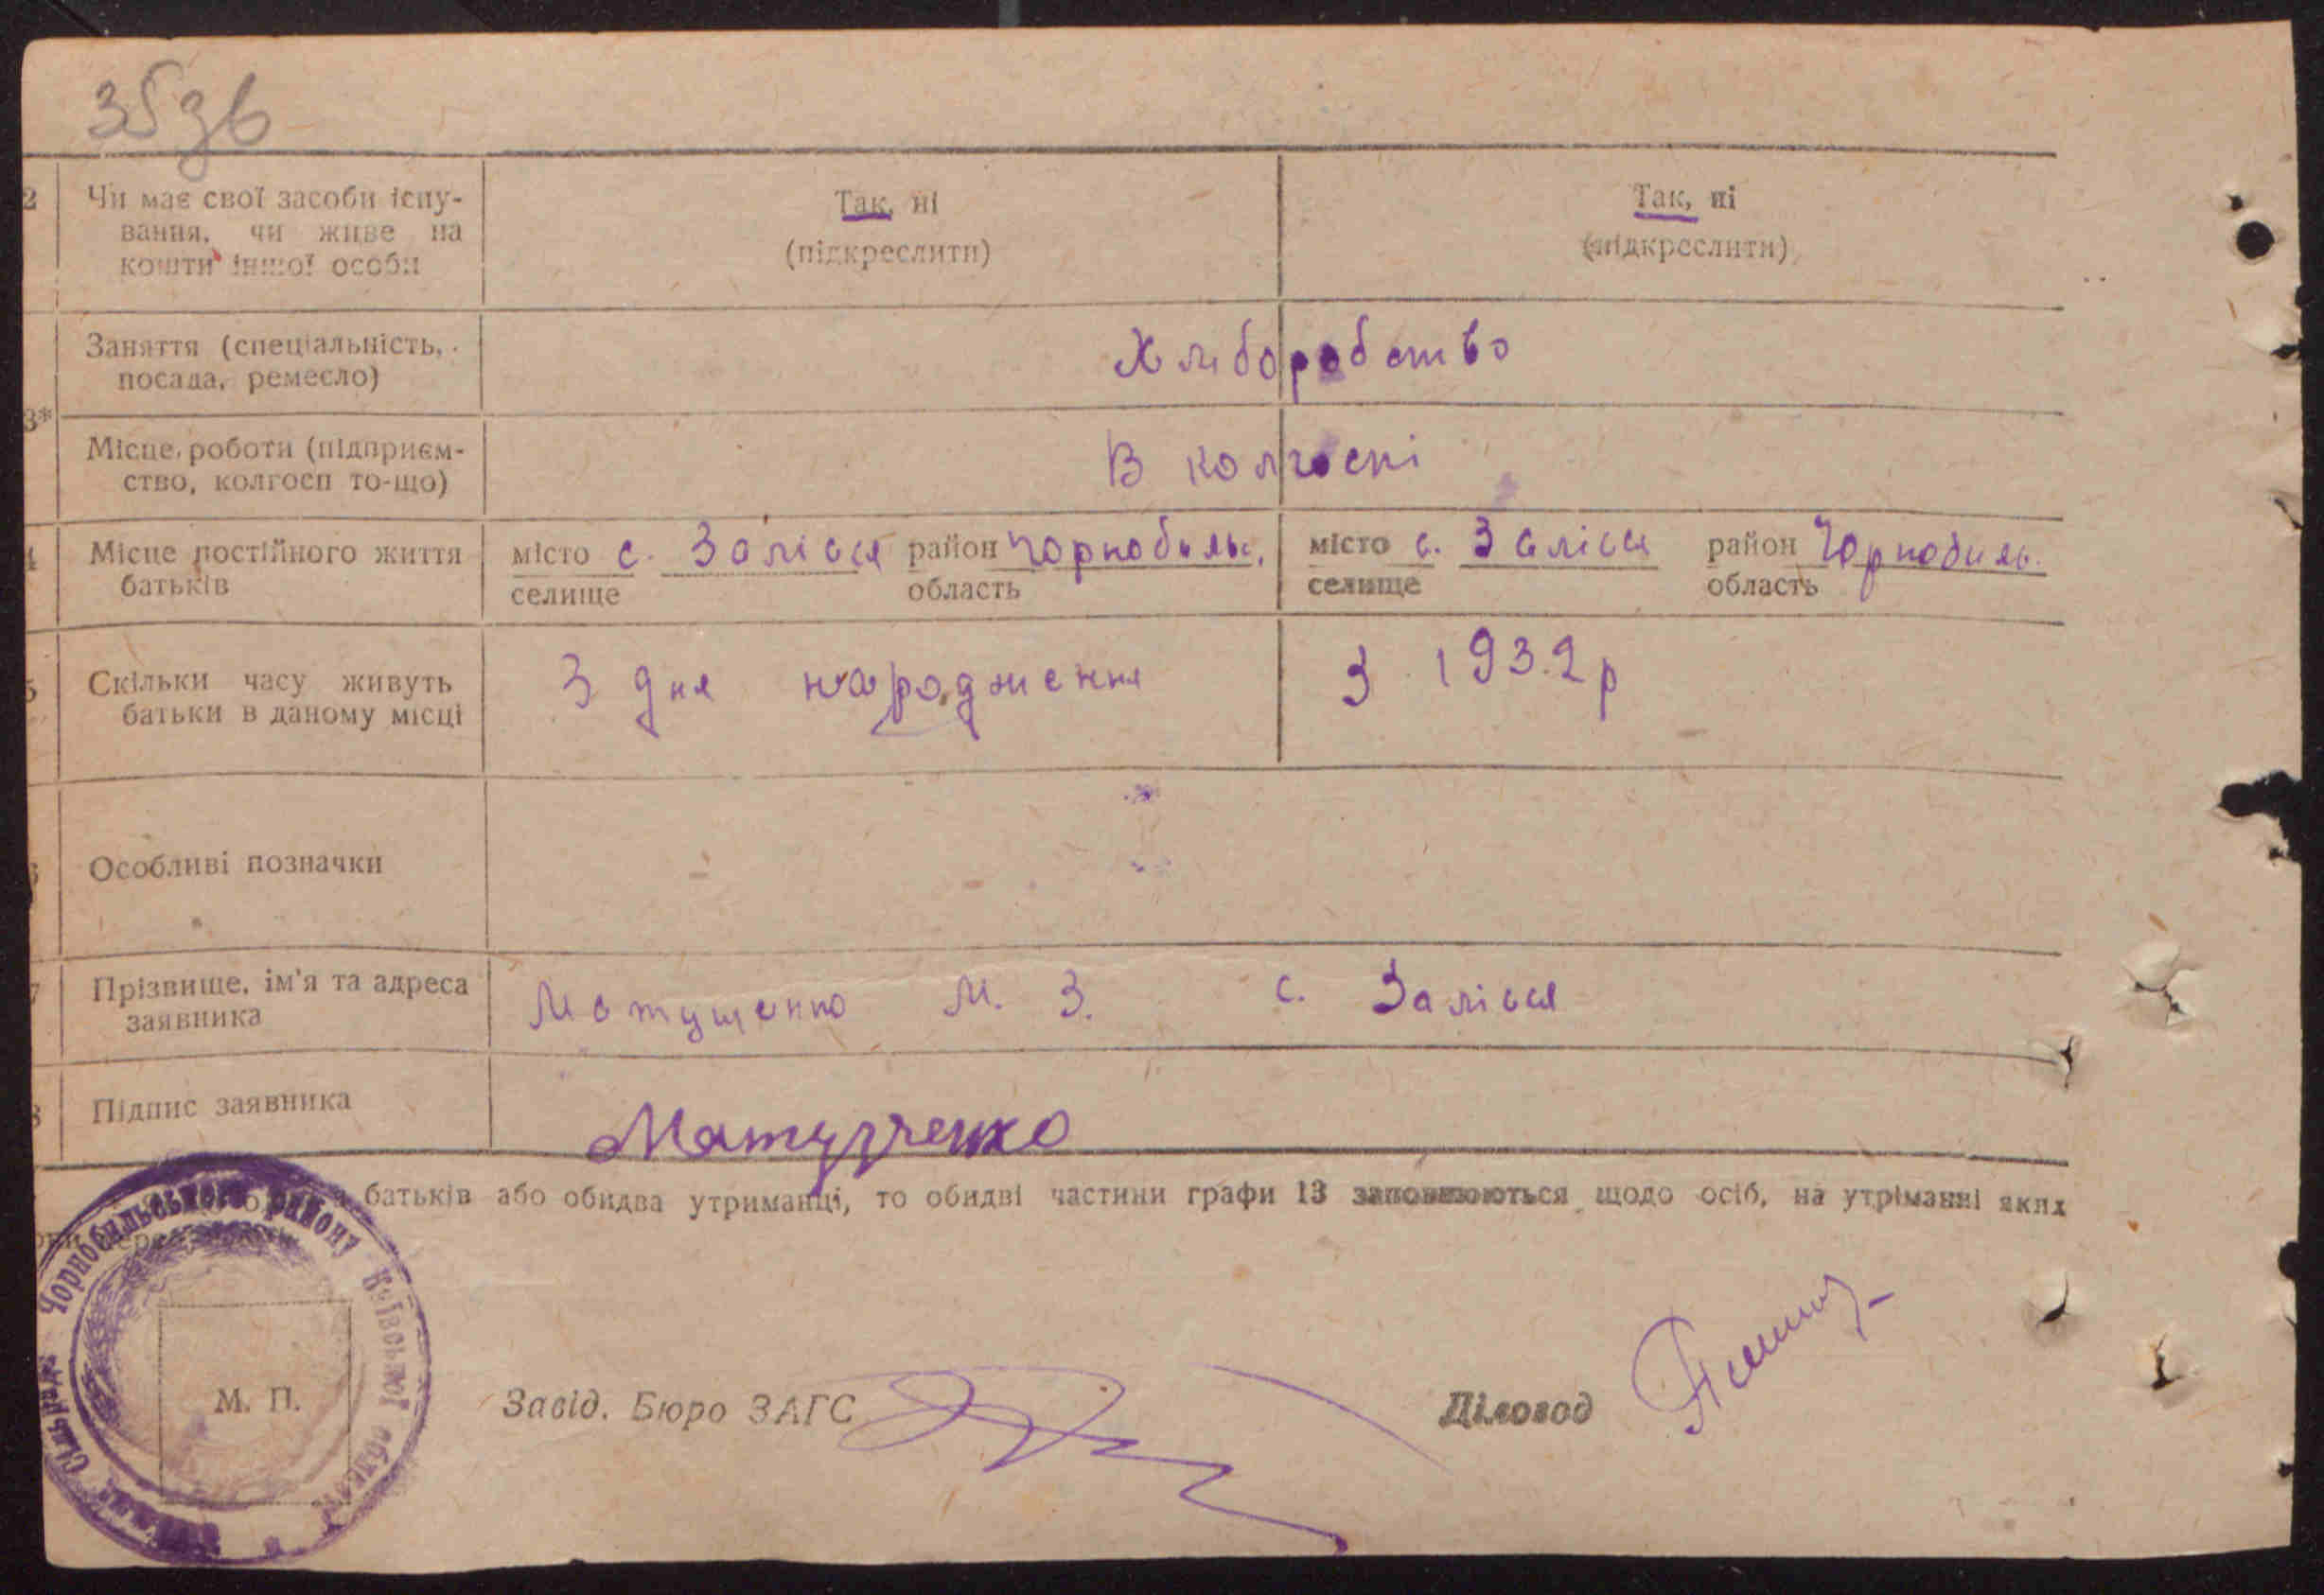 35зв
2 Чи має свої засоби існу-
вання, чи живе на
кошти іншої особи
Так, ні
(підкреслити)
Так, ні
(підкреслити)
Заняття (спеціальність,
посада, ремесло)
Хліборобство
3*
Місце роботи (підприєм-
ство, колгосп то-що)
В колгоспі
4 Місце постійного життя
батьків
місто с. Залісся район Чорнобиль.
селище область
місто с. Залісся район Чорнобиль.
селище область
5 Скільки часу живуть
батьки в даному місці
З дня народження
З 1932 р
6 Особливі позначки
7 Прізвище, ім'я та адреса
заявника
Матущенко М. З. с. Залісся
8 Підпис заявника
Матущенко
батьків або обидва утриманці, то обидві частини графи 13 заповнюються щодо осіб, на утріманні яких
Чорнобильського району Київської області
М. П.
Завід. Бюро ЗАГС
Діловод